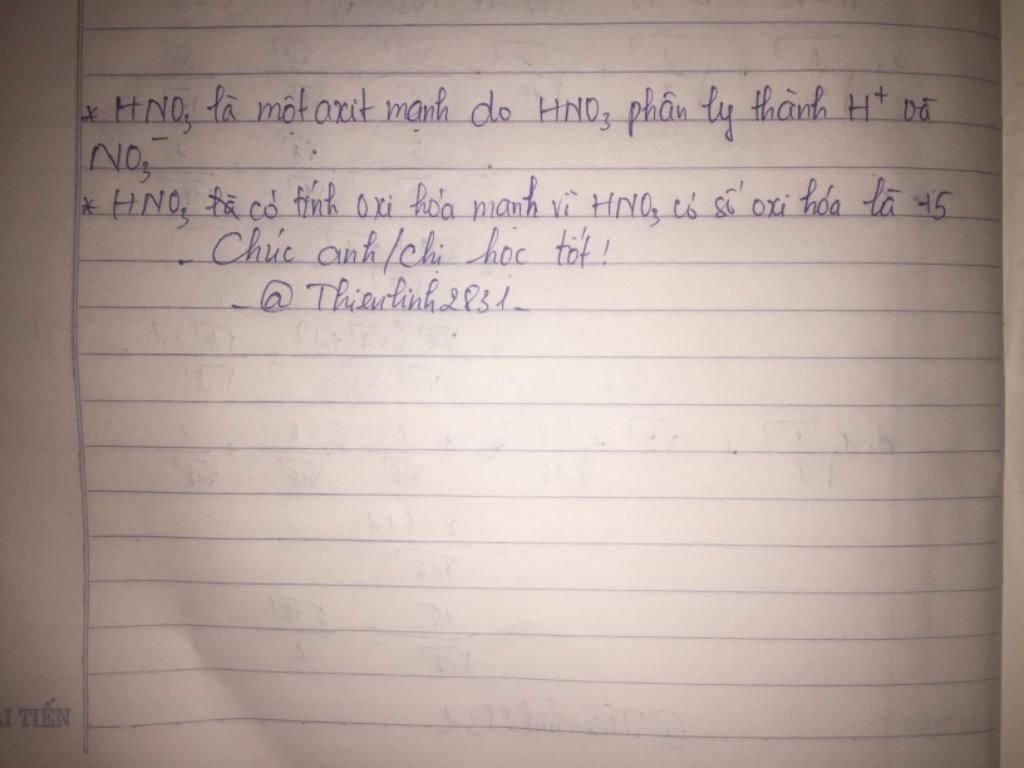 * HNO₃ là một axit mạnh do HNO₃ phân ly thành H⁺ và
NO₃⁻
* HNO₃ có tính oxi hóa mạnh vì HNO₃ có số oxi hóa là +5
. Chúc anh/chị học tốt!
- @ Thienlinh2831 -
TIẾN